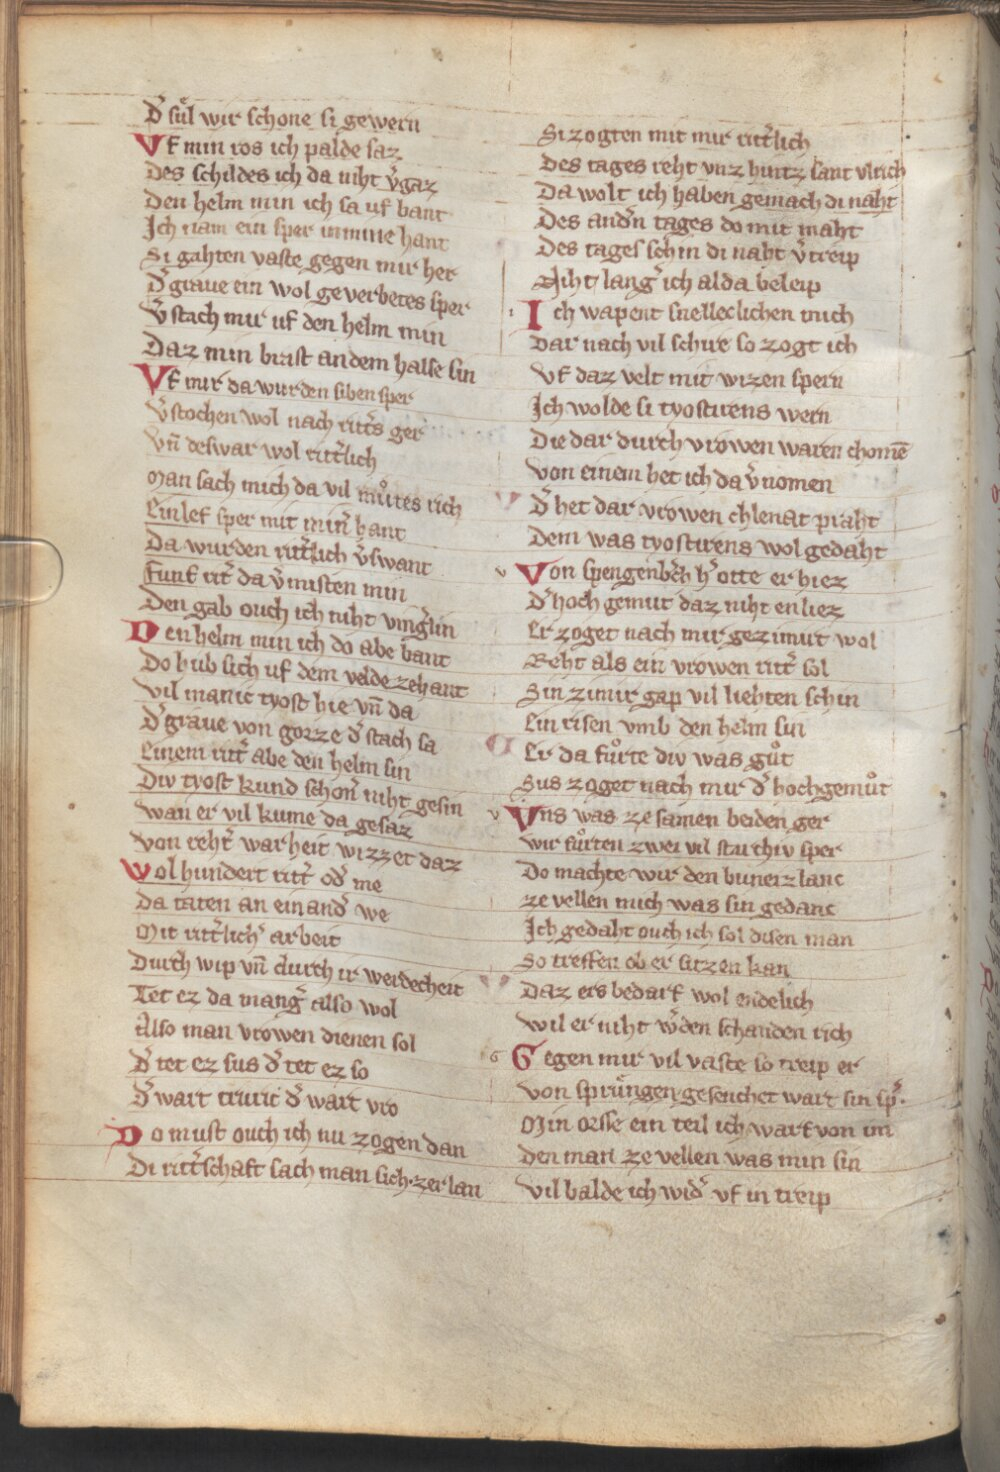 D̾ sul wir schone si gewern
Vf min ros ich palde saz
Des schildes ich da niht v̾gaz
Den helm min ich sa uf bant
Ich nam ein sper in mine hant
Si gahten vaste gegen mir her
D̾ graue ein wol geverbetes sper
V̾stach mir uf den helm min
Daz min brust an dem halse sin
Vf mir da wurden siben sper
V̾stochen wol nach ritt̾s ger
Vn̄ deswar wol ritt̾lich
Man sach mich da vil můtes rich
Einlef sper mit min̾ hant
Da wurden ritt̾lich v̾swant
Funf ritt̾ da v̾misten min
Den gab ouch ich niht ving̾lin
Den helm min ich do abe bant
Do hub sich uf dem velde zehant
Vil manic tyost hie vn̄ da
D̾ graue von gorze d̾ stach sa
Einem ritt̾ abe den helm sin
Div tyost kund schon̾ niht gesin
Wan er vil kume da gesaz
Von reht̾ warheit wizzet daz
Wol hundert ritt̾ od̾ me
Da taten an einand̾ we
Mit ritt̾lich̾ arbeit
Durch wip vn̄ durch ir werdecheit
Tet ez da mang̾ also wol
Also man vrowen dienen sol
D̾ tet ez sus d̾ tet ez so
D̾ wart truric d̾ wart vro
Do must ouch ich nu zogen dan
Di ritt̾schaft sach man sich zerlan
Si zogten mit mir ritt̾lich
Des tages reht vnz hintz sant vlrich
Da wolt ich haben gemach di naht
Des and̾n tages do mit maht
Des tages schin di naht v̾treip
Niht lang̾ ich alda beleip
Ich wapent snelleclichen mich
Dar nach vil schire so zogt ich
Vf daz velt mit wizen spern
Ich wolde si tyostirens wern
Die dar durch vrowen waren chomē
Von einem het ich da v̾nomen
D̾ het dar vrowen chlenat praht
Dem was tyostirens wol gedaht
Von spengenb̾ch h̾ otte er hiez
D̾ hoch gemut daz niht enliez
Er zoget nach mir gezimirt wol
Reht als ein vrowen ritt̾ sol
Sin zimir gap vil liehten schin
Ein risen vmb den helm sin
Er da fůrte div was gůt
Sus zoget nach mir d̾ hochgemůt
Vns was ze samen beiden ger
Wir fůrten zwei vil starchiv sper
Do machte wir den bunerz lanc
Ze vellen mich was sin gedanc
Ich gedaht ouch ich sol disen man
So treffen ob er sitzen kan
Daz ers bedarf wol endelich
Wil er niht w̾den schanden rich
Gegen mir vil vaste so treip er
Von sprungen gesenchet wart sin sp̾.
Min orsse ein teil ich warf von im
Den man ze vellen was min sin
Vil balde ich wid̾ vf in treip